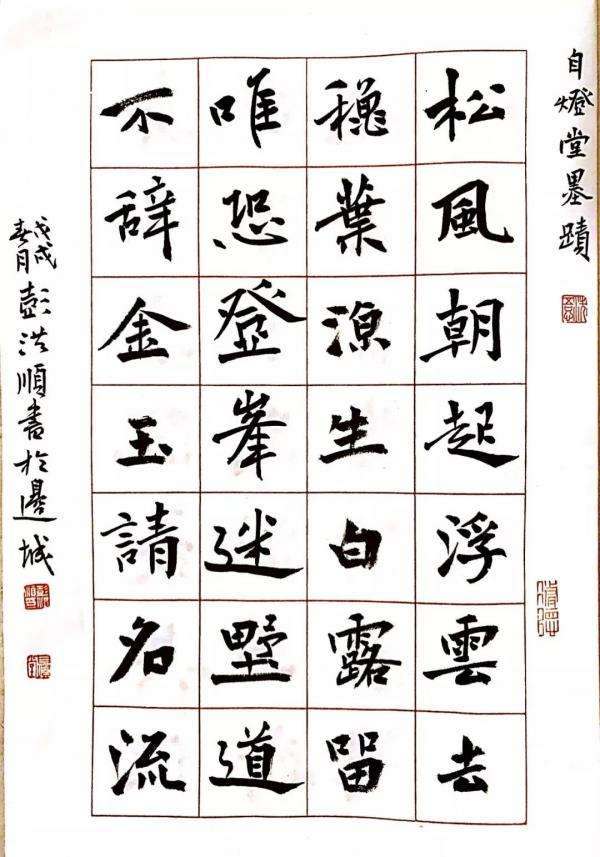 自燈堂墨蹟
松風朝起浮雲去
穐葉涼生白露留
唯恐登峯迷野道
不辭金玉請名流
戊戌春月彭洪順書於邊城